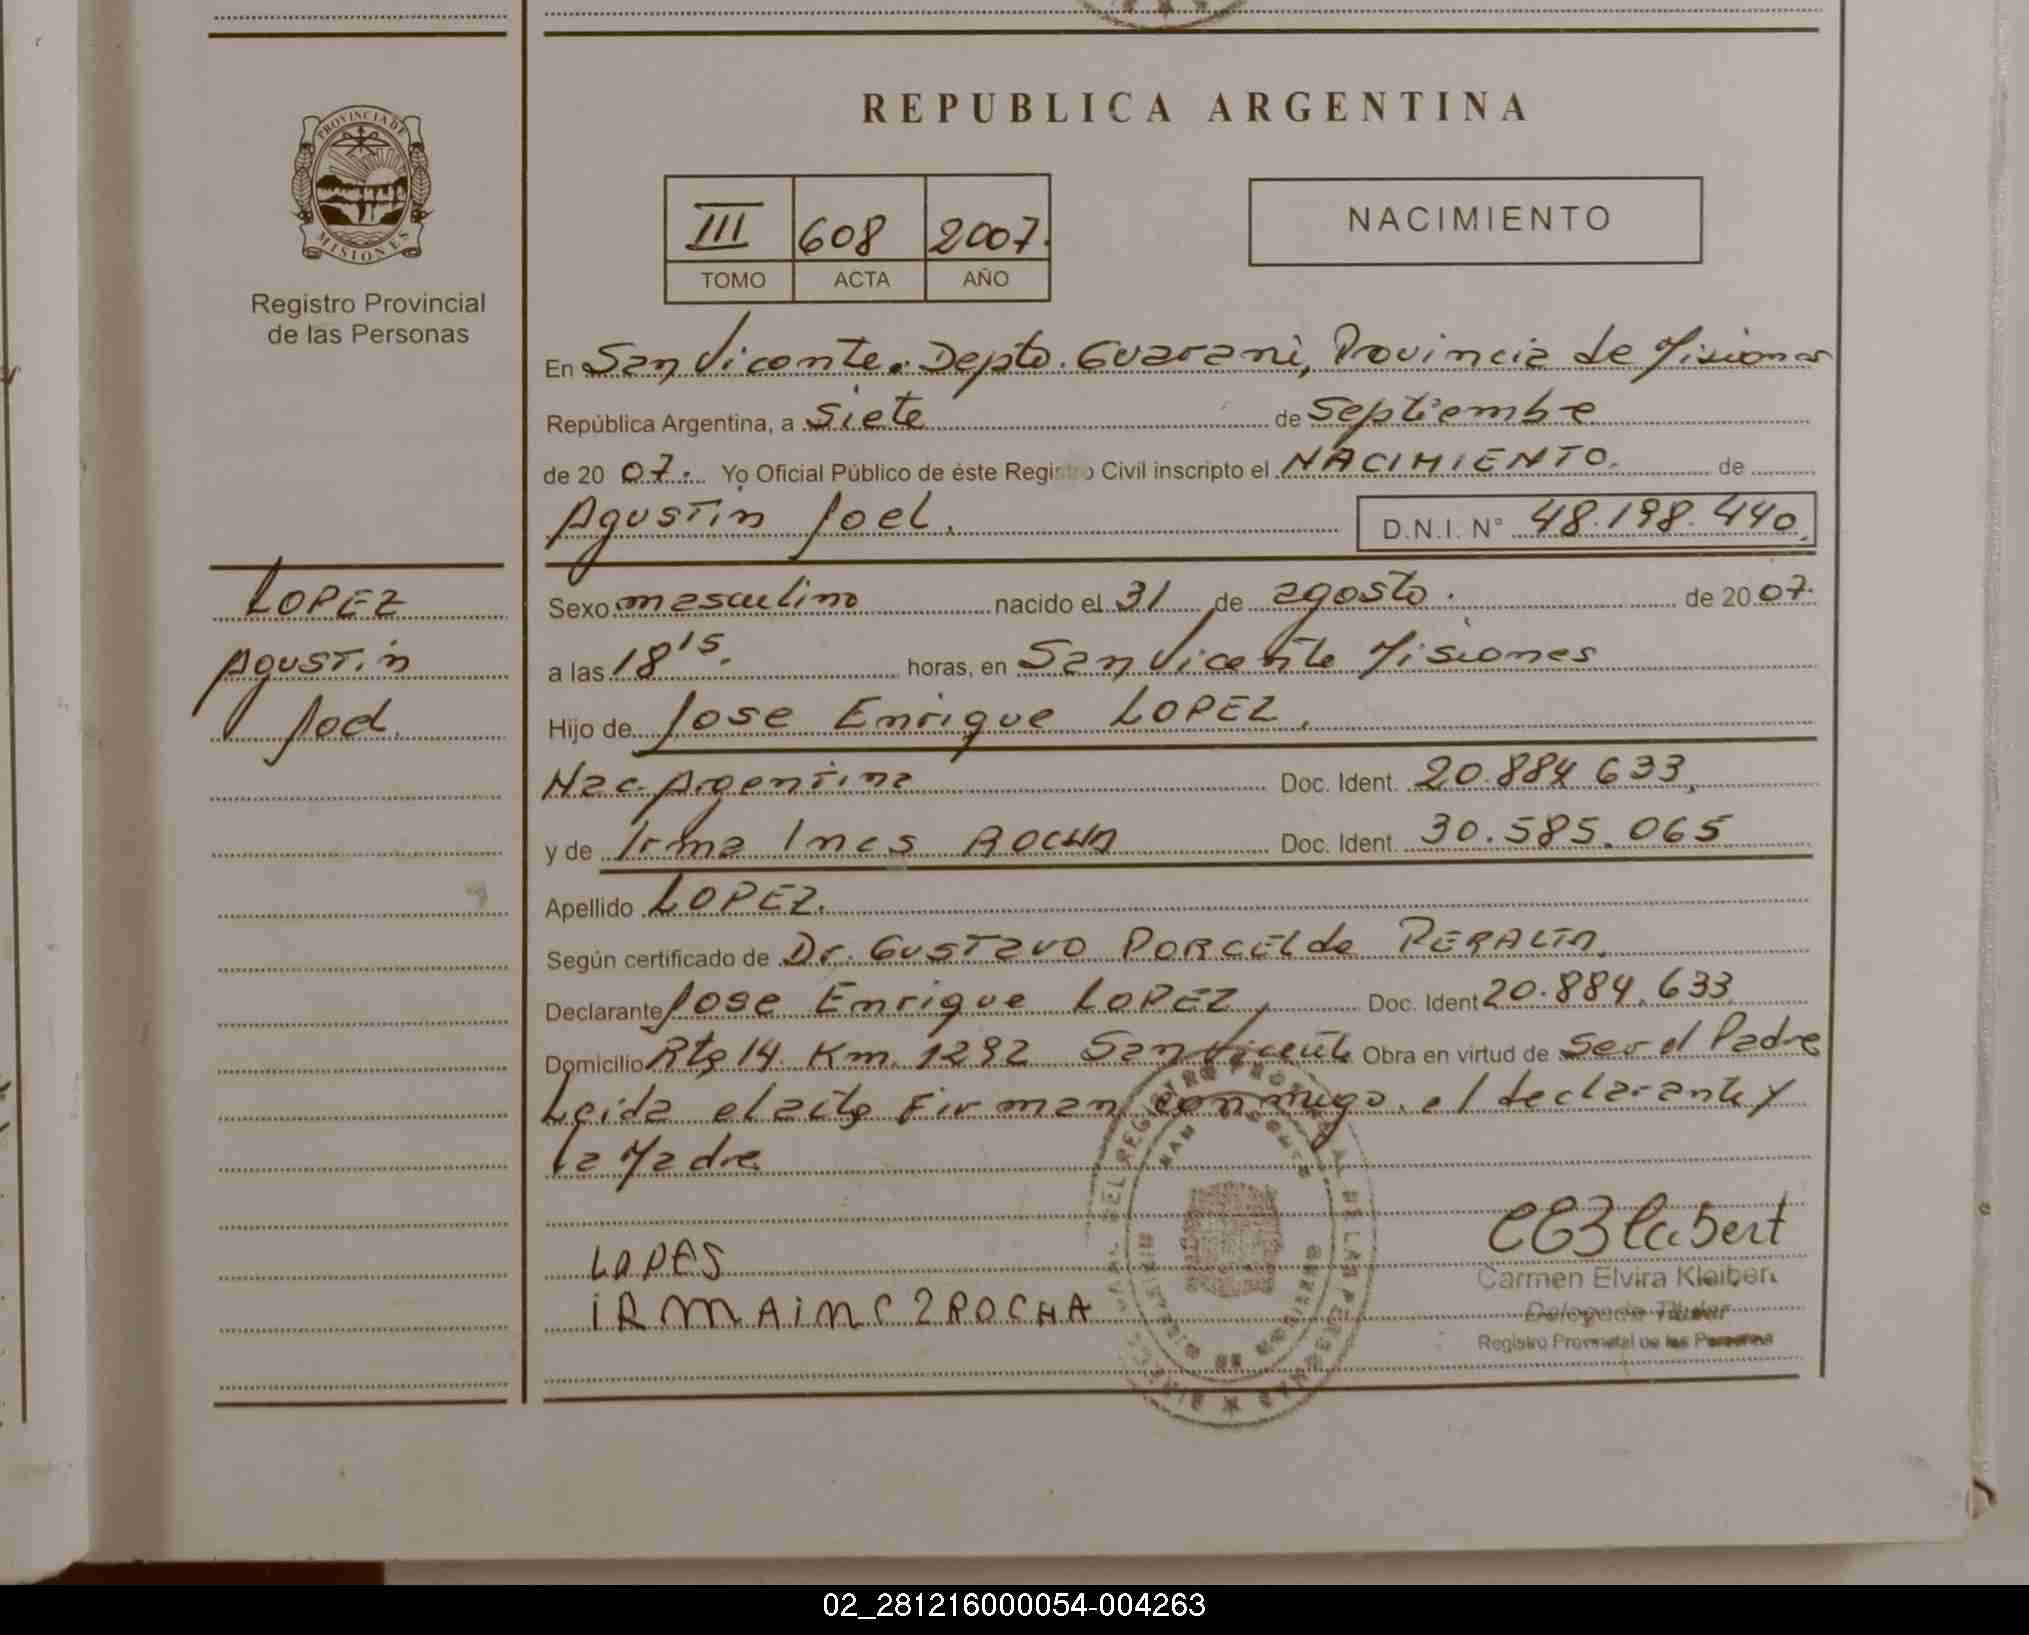 REPUBLICA ARGENTINA
PROVINCIA DE
MISIONES
Registro Provincial
de las Personas
III 608 2007.
TOMO ACTA AÑO
NACIMIENTO
En San Vicente. Depto. Guarani, Provincia de Misiones
República Argentina, a siete de Septiembre
de 20 07. Yo Oficial Público de éste Registro Civil inscripto el NACIMIENTO. de
Agustin Joel. D.N.I. N° 48.198.440.
LOPEZ
Agustin
Joel.
Sexo masculino nacido el 31 de agosto. de 20 07.
a las 18 15. horas, en San Vicente Misiones
Hijo de Jose Enrique LOPEZ.
Nac. Argentina Doc. Ident. 20.884.633,
y de Irma Ines ROCHA Doc. Ident. 30.585.065
Apellido LOPEZ.
Según certificado de Dr. Gustavo PORCEL de PERALTA.
Declarante Jose Enrique LOPEZ, Doc. Ident 20.884.633
Domicilio Rta 14. Km. 1292 San Vicente Obra en virtud de Ser el Padre
Leida el acta Firman conmigo. el declarante y
la Madre
LOPES
iRMAiNC2ROCHA
Carmen Elvira Kleibert
Delegada Titular
Registro Provincial de las Personas
02_281216000054-004263